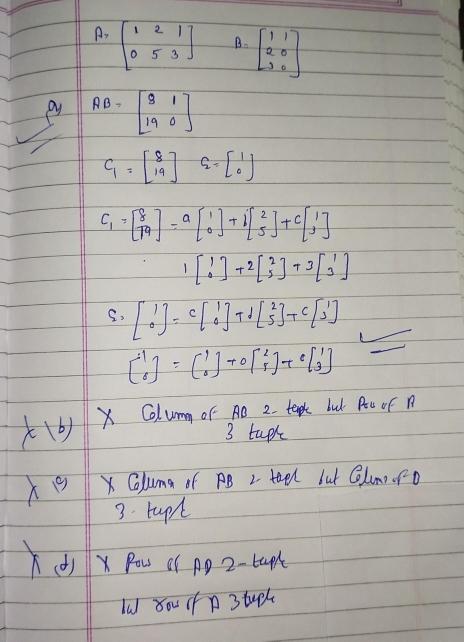 A = [1 2 1; 0 5 3] B = [1 1; 2 0; 3 0]
a) AB = [8 1; 19 0]
C₁ = [8; 19] C₂ = [1; 0]
C₁ = [8; 19] = a[1; 0] + b[2; 5] + c[1; 3]
1[1; 0] + 2[2; 5] + 3[1; 3]
C₂ = [1; 0] = c[1; 0] + d[2; 5] + c[1; 3]
[1; 0] = [1; 0] + 0[2; 5] + 0[1; 3]
X b) X Column of AB 2-tuple but Row of A
3 tuple
X c) X Column of AB 2 tuple but Column of B
3-tuple
X d) X Row of AB 2-tuple
but row of A 3 tuple